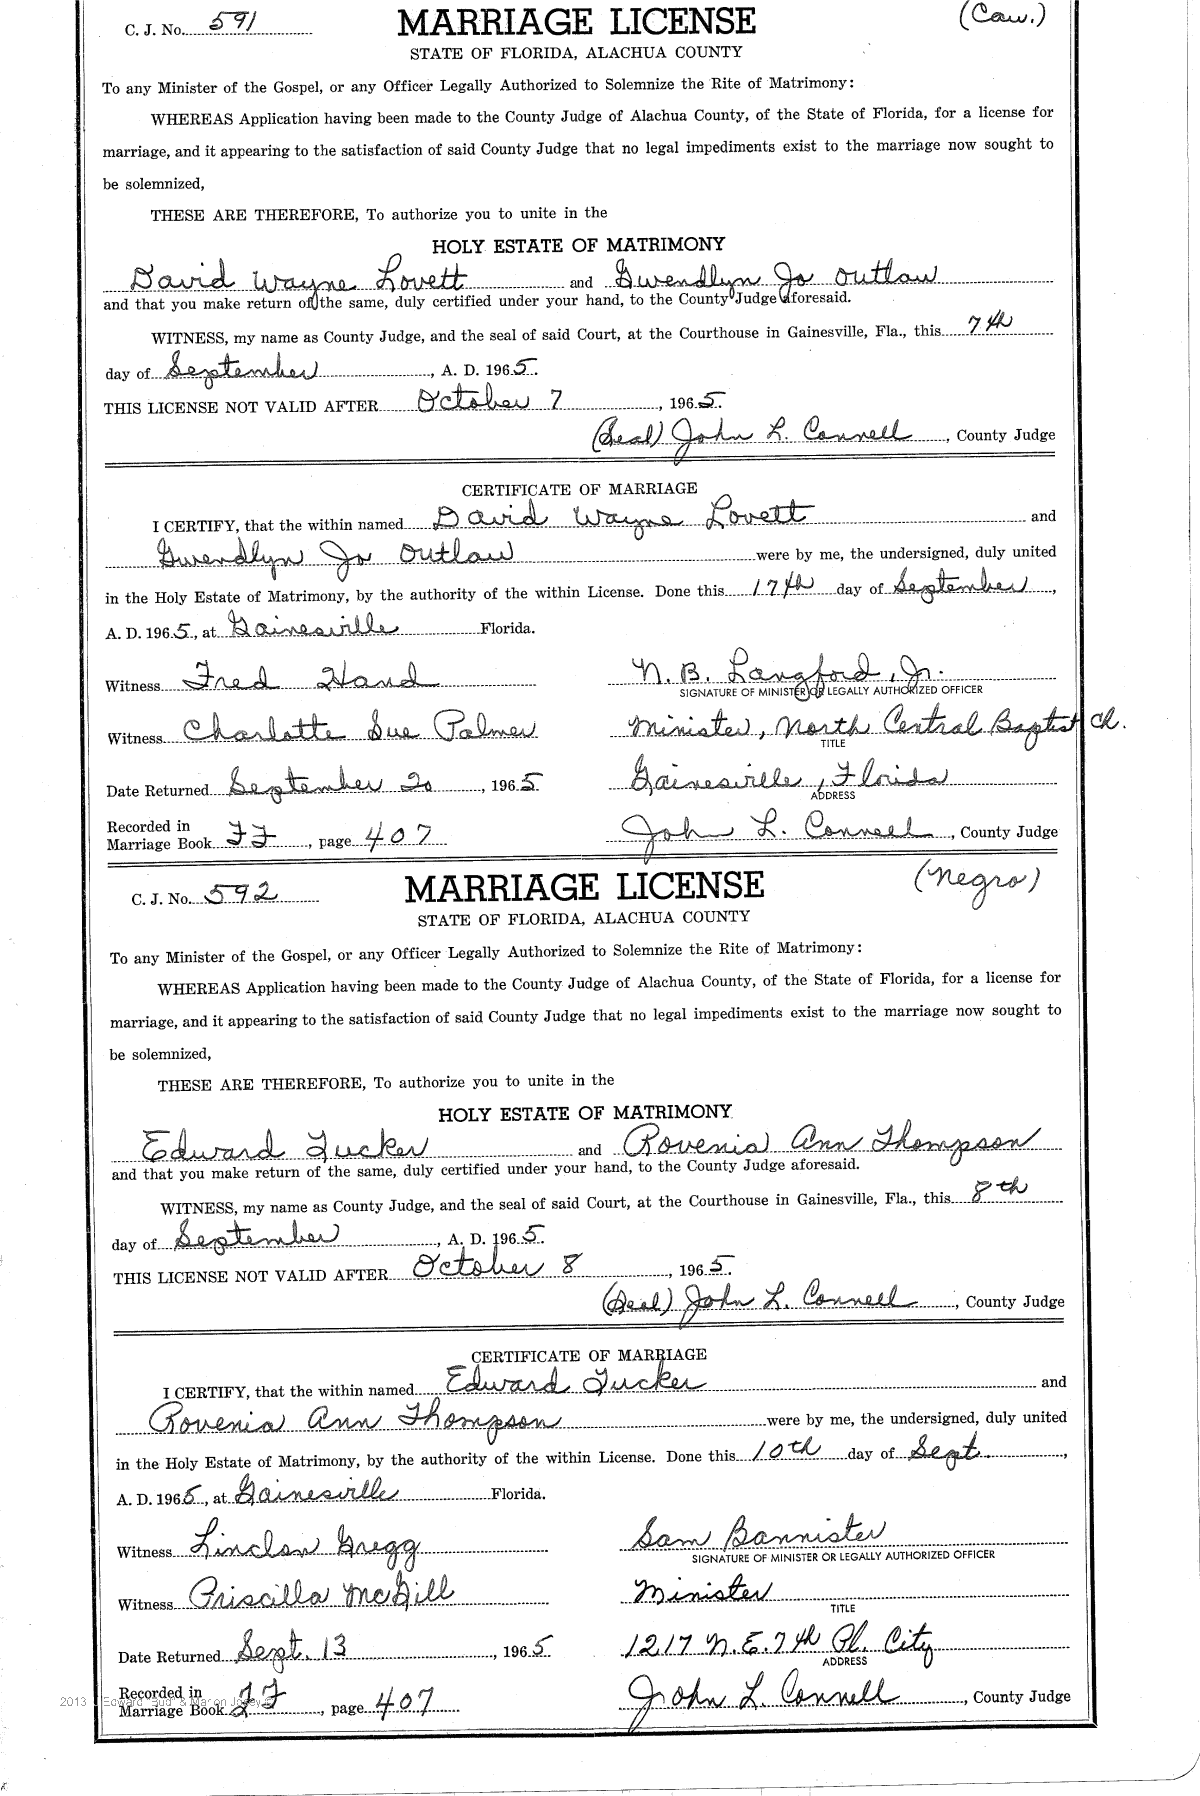 C. J. No. 591 MARRIAGE LICENSE (Caw.)
STATE OF FLORIDA, ALACHUA COUNTY
To any Minister of the Gospel, or any Officer Legally Authorized to Solemnize the Rite of Matrimony:
WHEREAS Application having been made to the County Judge of Alachua County, of the State of Florida, for a license for
marriage, and it appearing to the satisfaction of said County Judge that no legal impediments exist to the marriage now sought to
be solemnized,
THESE ARE THEREFORE, To authorize you to unite in the
HOLY ESTATE OF MATRIMONY
David Wayne Lovett and Gwendlyn Jo Outlaw
and that you make return of the same, duly certified under your hand, to the County Judge aforesaid.
WITNESS, my name as County Judge, and the seal of said Court, at the Courthouse in Gainesville, Fla., this 7th
day of September, A. D. 1965.
THIS LICENSE NOT VALID AFTER October 7, 1965.
(Seal) John L. Connell, County Judge
CERTIFICATE OF MARRIAGE
I CERTIFY, that the within named David Wayne Lovett and
Gwendlyn Jo Outlaw were by me, the undersigned, duly united
in the Holy Estate of Matrimony, by the authority of the within License. Done this 17th day of September,
A. D. 1965, at Gainesville Florida.
Witness Fred Hand N. B. Langford, Jr.
SIGNATURE OF MINISTER OR LEGALLY AUTHORIZED OFFICER
Witness Charlotte Sue Palmer Minister, North Central Baptist Ch.
TITLE
Date Returned September 20, 1965 Gainesville, Florida
ADDRESS
Recorded in
Marriage Book FF, page 407 John L. Connell, County Judge
C. J. No. 592 MARRIAGE LICENSE (Negro)
STATE OF FLORIDA, ALACHUA COUNTY
To any Minister of the Gospel, or any Officer Legally Authorized to Solemnize the Rite of Matrimony:
WHEREAS Application having been made to the County Judge of Alachua County, of the State of Florida, for a license for
marriage, and it appearing to the satisfaction of said County Judge that no legal impediments exist to the marriage now sought to
be solemnized,
THESE ARE THEREFORE, To authorize you to unite in the
HOLY ESTATE OF MATRIMONY
Edward Tucker and Rovenia Ann Thompson
and that you make return of the same, duly certified under your hand, to the County Judge aforesaid.
WITNESS, my name as County Judge, and the seal of said Court, at the Courthouse in Gainesville, Fla., this 8th
day of September, A. D. 1965.
THIS LICENSE NOT VALID AFTER October 8, 1965.
(Seal) John L. Connell, County Judge
CERTIFICATE OF MARRIAGE
I CERTIFY, that the within named Edward Tucker and
Rovenia Ann Thompson were by me, the undersigned, duly united
in the Holy Estate of Matrimony, by the authority of the within License. Done this 10th day of Sept.,
A. D. 1965, at Gainesville Florida.
Witness Linclon Gregg Sam Bannister
SIGNATURE OF MINISTER OR LEGALLY AUTHORIZED OFFICER
Witness Priscilla McGill Minister
TITLE
Date Returned Sept. 13, 1965 1217 N.E. 7th Pl. City
ADDRESS
Recorded in
Marriage Book FF, page 407 John L. Connell, County Judge
2013 Edward "Bud" & Marion